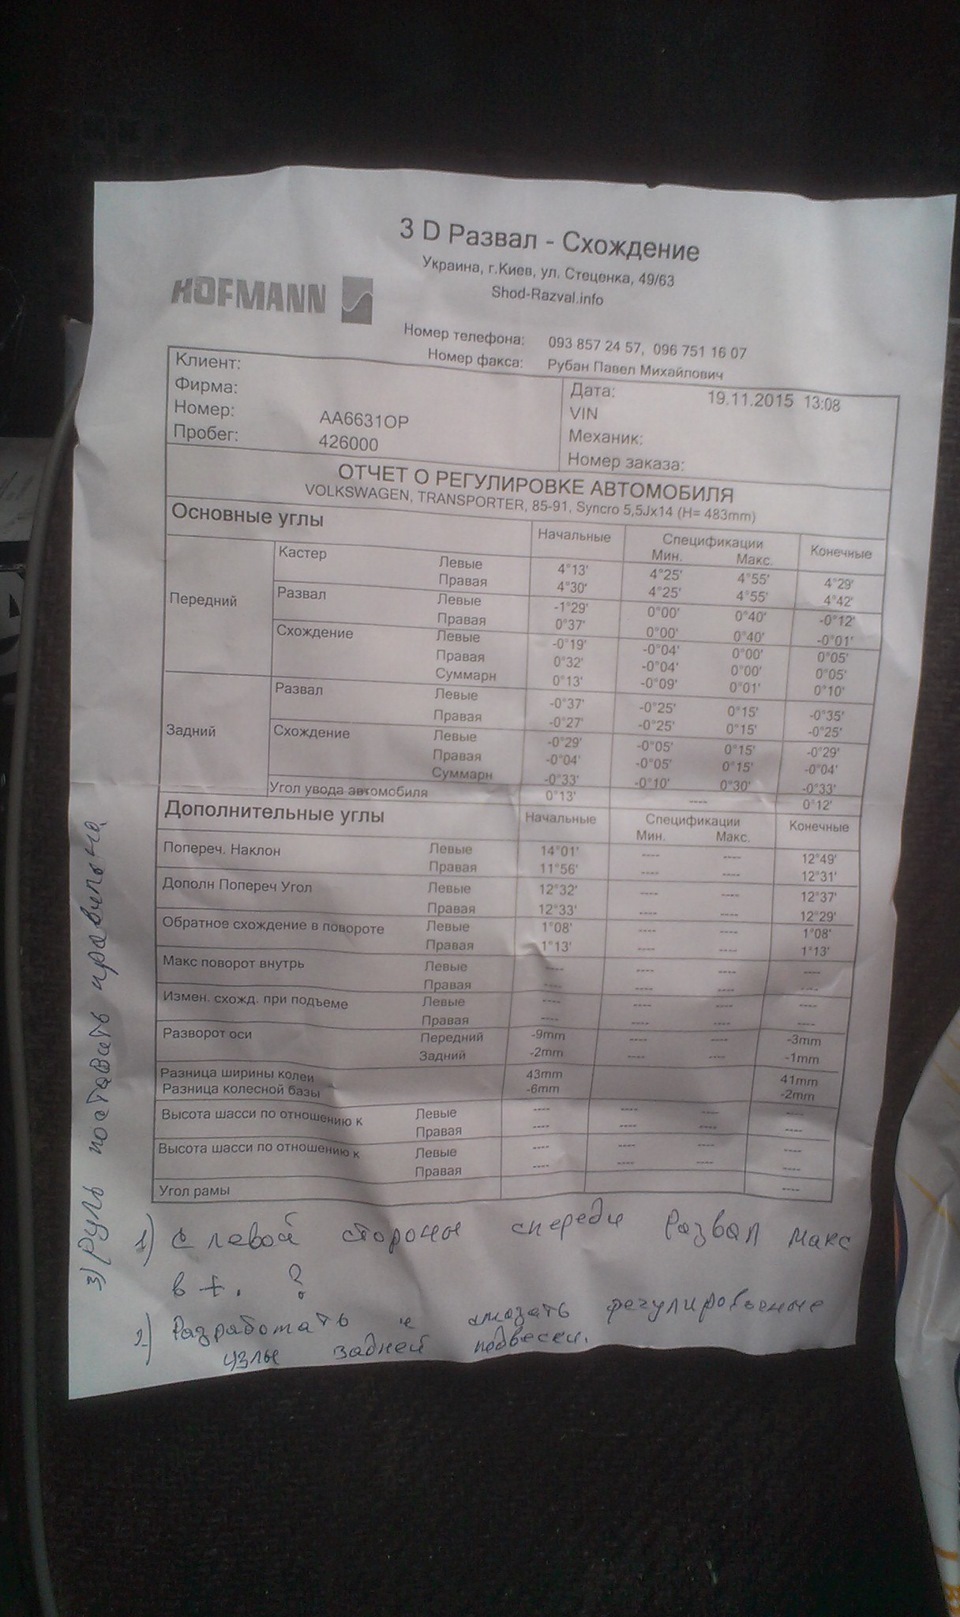 3 D Развал - Схождение
Украина, г.Киев, ул. Стеценка, 49/63
Shod-Razval.info
HOFMANN
Номер телефона: 093 857 24 57, 096 751 16 07
Номер факса: Рубан Павел Михайлович
Клиент:
Фирма:
Номер: AA6631OP
Пробег: 426000
Дата: 19.11.2015 13:08
VIN
Механик:
Номер заказа:
ОТЧЕТ О РЕГУЛИРОВКЕ АВТОМОБИЛЯ
VOLKSWAGEN, TRANSPORTER, 85-91, Syncro 5,5Jx14 (H= 483mm)
Основные углы Начальные Спецификации Конечные
Мин. Макс.
Передний
Кастер Левые 4°13' 4°25' 4°55' 4°29'
Правая 4°30' 4°25' 4°55' 4°42'
Развал Левые -1°29' 0°00' 0°40' -0°12'
Правая 0°37' 0°00' 0°40' -0°01'
Схождение Левые -0°19' -0°04' 0°00' 0°05'
Правая 0°32' -0°04' 0°00' 0°05'
Суммарн 0°13' -0°09' 0°01' 0°10'
Задний
Развал Левые -0°37' -0°25' 0°15' -0°35'
Правая -0°27' -0°25' 0°15' -0°25'
Схождение Левые -0°29' -0°05' 0°15' -0°29'
Правая -0°04' -0°05' 0°15' -0°04'
Суммарн -0°33' -0°10' 0°30' -0°33'
Угол увода автомобиля 0°13' ---- 0°12'
Дополнительные углы Начальные Спецификации Конечные
Мин. Макс.
Попереч. Наклон Левые 14°01' ---- ---- 12°49'
Правая 11°56' ---- ---- 12°31'
Дополн Попереч Угол Левые 12°32' ---- ---- 12°37'
Правая 12°33' ---- ---- 12°29'
Обратное схождение в повороте Левые 1°08' ---- ---- 1°08'
Правая 1°13' ---- ---- 1°13'
Макс поворот внутрь Левые ---- ---- ---- ----
Правая ---- ---- ---- ----
Измен. схожд. при подъеме Левые ---- ---- ---- ----
Правая ---- ---- ---- ----
Разворот оси Передний -9mm ---- ---- -3mm
Задний -2mm ---- ---- -1mm
Разница ширины колеи 43mm 41mm
Разница колесной базы -6mm -2mm
Высота шасси по отношению к Левые ---- ---- ---- ----
Правая ---- ---- ---- ----
Высота шасси по отношению к Левые ---- ---- ---- ----
Правая ---- ---- ---- ----
Угол рамы ----
1) с левой стороны спереди развал макс
в +. ?
2) Разработать и смазать регулировочные
узлы задней подвески.
3) Руль поставить правильно